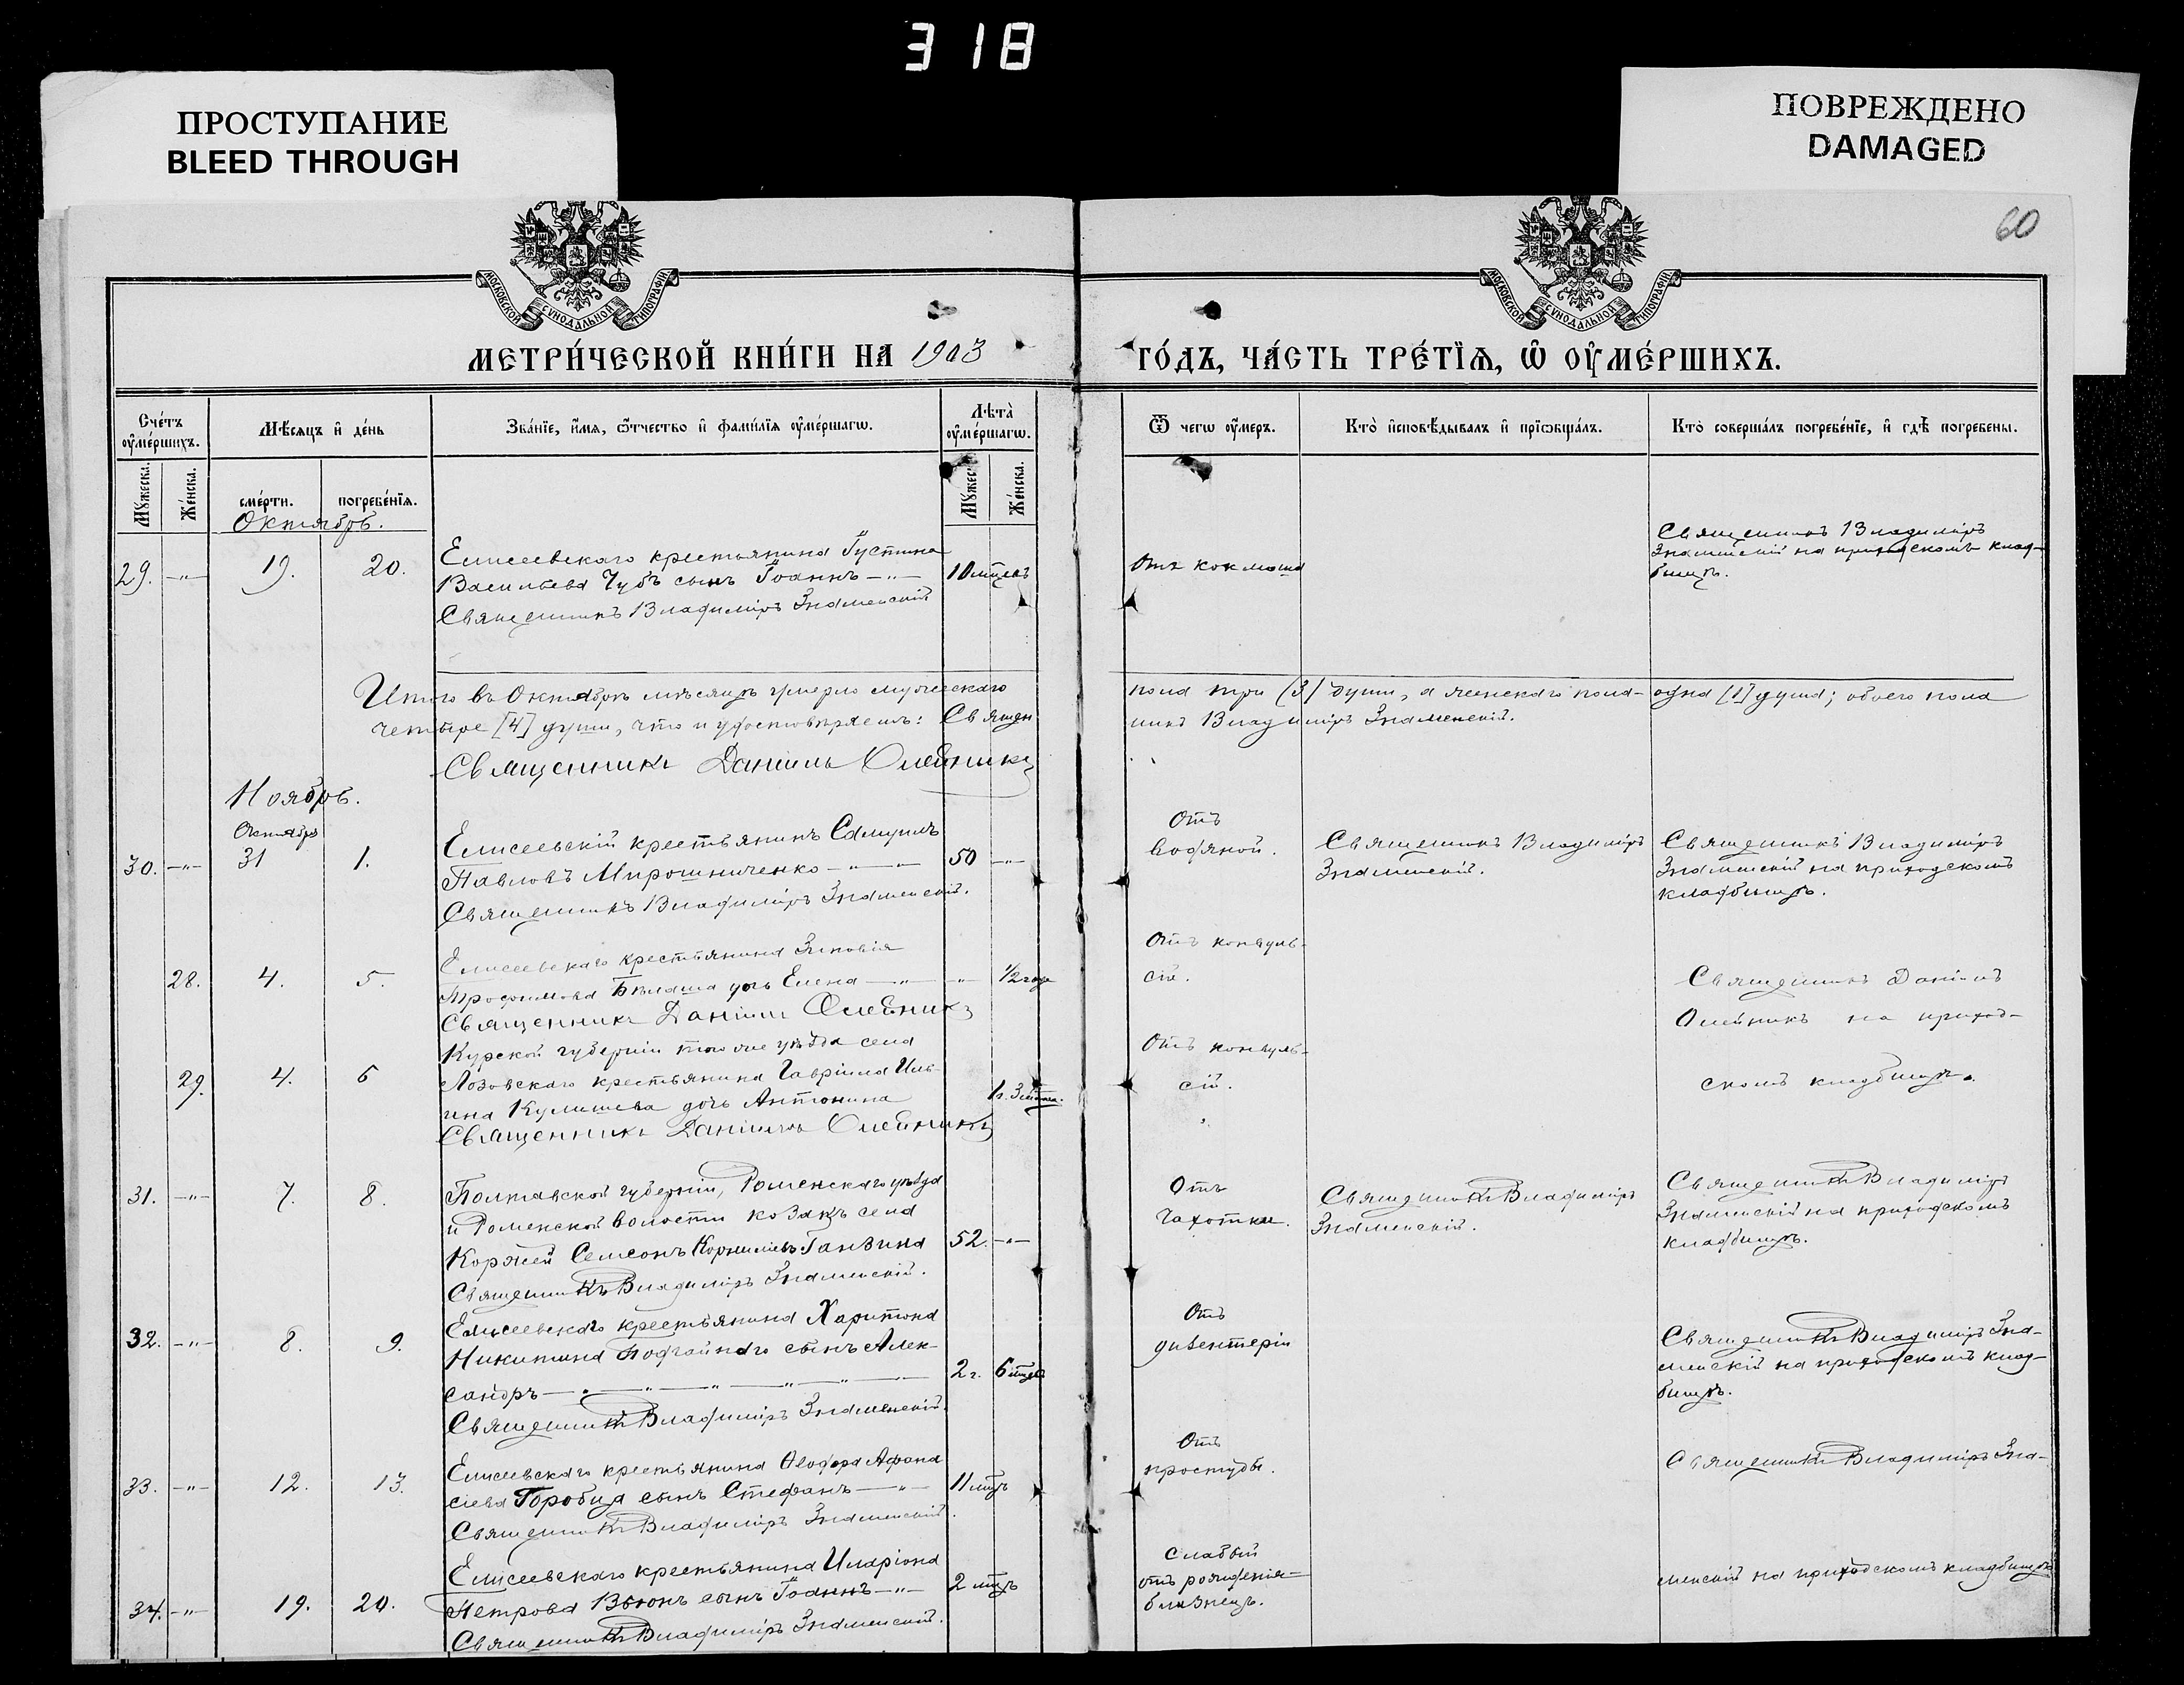 318
ПРОСТУПАНИЕ
BLEED THROUGH
ПОВРЕЖДЕНО
DAMAGED
60
МОСКОВСКОЙ СУНОДАЛЬНОЙ ТИПОГРАФІИ
МОСКОВСКОЙ СУНОДАЛЬНОЙ ТИПОГРАФІИ
МЕТРИ́ЧЕСКОЙ КНИ́ГИ НА 1903 ГО́ДЪ, ЧА́СТЬ ТРЕ́ТЇѦ, Ѿ ОУМЕ́РШИХЪ.
Сче́тъ оумéршихъ.
Мѣсяцъ и де́нь
Зва́нїе, и́мя, ѿтчество и фами́лїя оумéршагѡ.
Лѣта̀ оумéршагѡ.
Ѿ чегѡ оумеръ.
Кто̀ исповѣдывалъ и прїѡбща́лъ.
Кто̀ соверша́лъ погребе́нїе, и гдѣ погребены.
Мужеска. Же́нска.
сме́рти. погребе́нїя.
Мужес. Же́нска.
Октябрь.
29. —„— 19. 20.
Елисеевскаго крестьянина Іустина
Васильева Чубъ сынъ Іоаннъ —„—
Священникъ Владиміръ Знаменскій
10 мцевъ
Отъ коклюша
Священникъ Владиміръ
Знаменскій на приходскомъ клад-
бищѣ.
Итого въ Октябрѣ мѣсяцѣ умерло мужескаго пола три (3) души, а женскаго пола - одна [1] душа; обоего пола
четыре [4] души, что и удостовѣряемъ: Священникъ Владиміръ Знаменскій.
Священникъ Даніилъ Олейникъ
Ноябрь.
Октября
30. —„— 31 1.
Елисеевскій крестьянинъ Самуилъ
Павловъ Мирошниченко —„—
Священникъ Владиміръ Знаменскій.
50 —„—
Отъ
водяной.
Священникъ Владиміръ
Знаменскій.
Священникъ Владиміръ
Знаменскій на приходскомъ
кладбищѣ.
28. 4. 5.
Елисеевскаго крестьянина Зиновія
Трофимова Бѣлаша дочь Елена —„—
Священникъ Даніилъ Олейникъ
—„— 1/2 года
Отъ конвуль-
сій.
Священникъ Даніилъ
Олейникъ на приход-
скомъ кладбищѣ.
29. 4. 6
Курской губерніи того же уѣзда села
Лозовскаго крестьянина Гавріила Иль-
ина Кулишева дочь Антонина
Священникъ Даніилъ Олейникъ
Отъ конвуль-
сій.
31. —„— 7. 8.
Полтавской губерніи, Роменскаго уѣзда
и Роменской волости козакъ села
Коржей Семсонъ Корнилiевъ Ганзина
Священникъ Владиміръ Знаменскій.
52. —„—
Отъ
чахотки.
Священникъ Владиміръ
Знаменскій.
Священникъ Владиміръ
Знаменскій на приходскомъ
кладбищѣ.
32. —„— 8. 9.
Елисеевскаго крестьянина Харитона
Никитина Подгайнаго сынъ Алек-
сандръ —„—„—„—„—„—
Священникъ Владиміръ Знаменскій.
2 г. 6 мцев
Отъ
дизентеріи
Священникъ Владиміръ Зна-
менскій на приходскомъ клад-
бищѣ.
33. —„— 12. 13.
Елисеевскаго крестьянина Ѳеодора Афана
сіева Горобца сынъ Стефанъ —„—
Священникъ Владиміръ Знаменскій.
11 мцъ
Отъ
простуды.
Священникъ Владиміръ Зна-
34. —„— 19. 20.
Елисеевскаго крестьянина Иларіона
Петрова Вьюнъ сынъ Іоаннъ —„—
Священникъ Владиміръ Знаменскій.
2 мцъ
Слабый
отъ рожденія—
близнецъ.
менскій на приходскомъ кладбищѣ